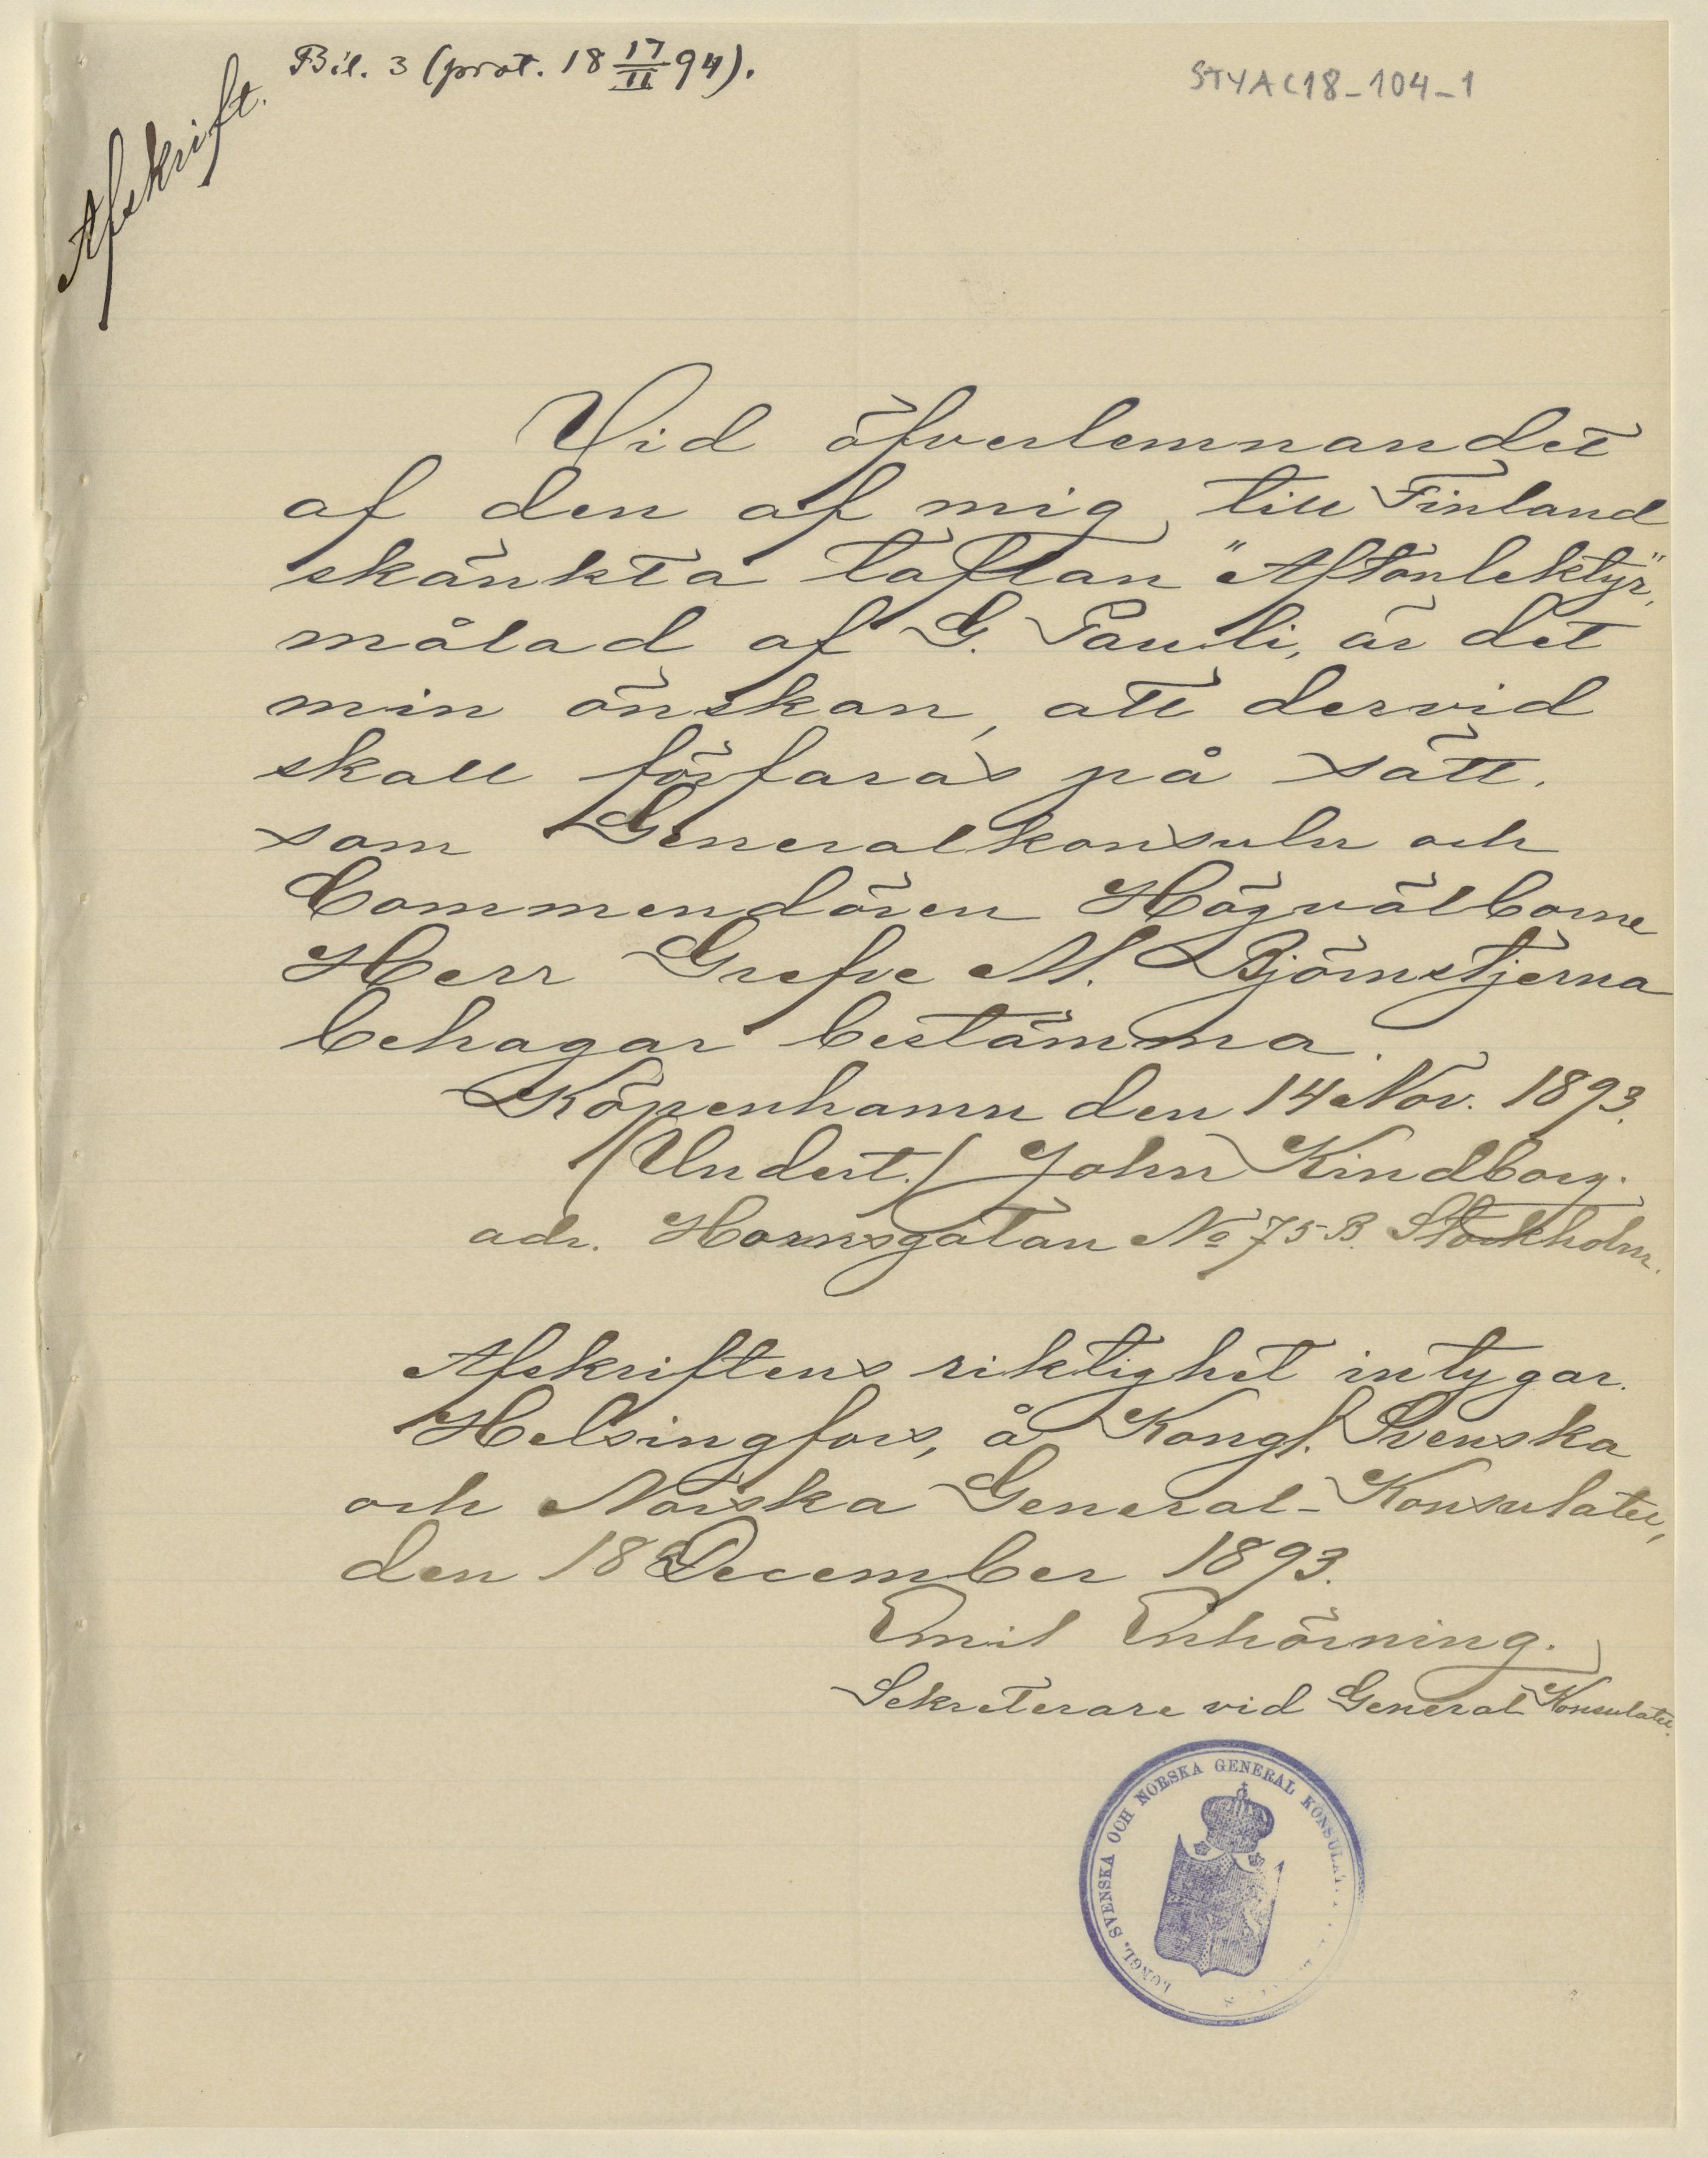 Bil. 3 (prot. 18 17/II 94).
STYAC18-104-1
Afskrift.
Vid öfverlemnandet
af den af mig till Finland
skänkta taflan "Aftonlektyr",
målad af G. Pauli, är det
min önskan, att dervid
skall förfaras på sätt.
som Generalkonsuln och
Commendören Högvälborne
Herr Grefve M. Björnstjerna
behagar bestämma.
Köpenhamn den 14 Nov. 1893.
(Undert.) John Kindborg.
adr. Hornsgatan No 75 B. Stockholm.
Afskriftens riktighet intygar.
Helsingfors, å Kongl. Svenska
och Norska General-Konsulatet,
den 18 December 1893.
Emil Enhörning.
Sekreterare vid General Konsulatet.
KONGL. SVENSKA OCH NORSKA GENERAL KONSULAT